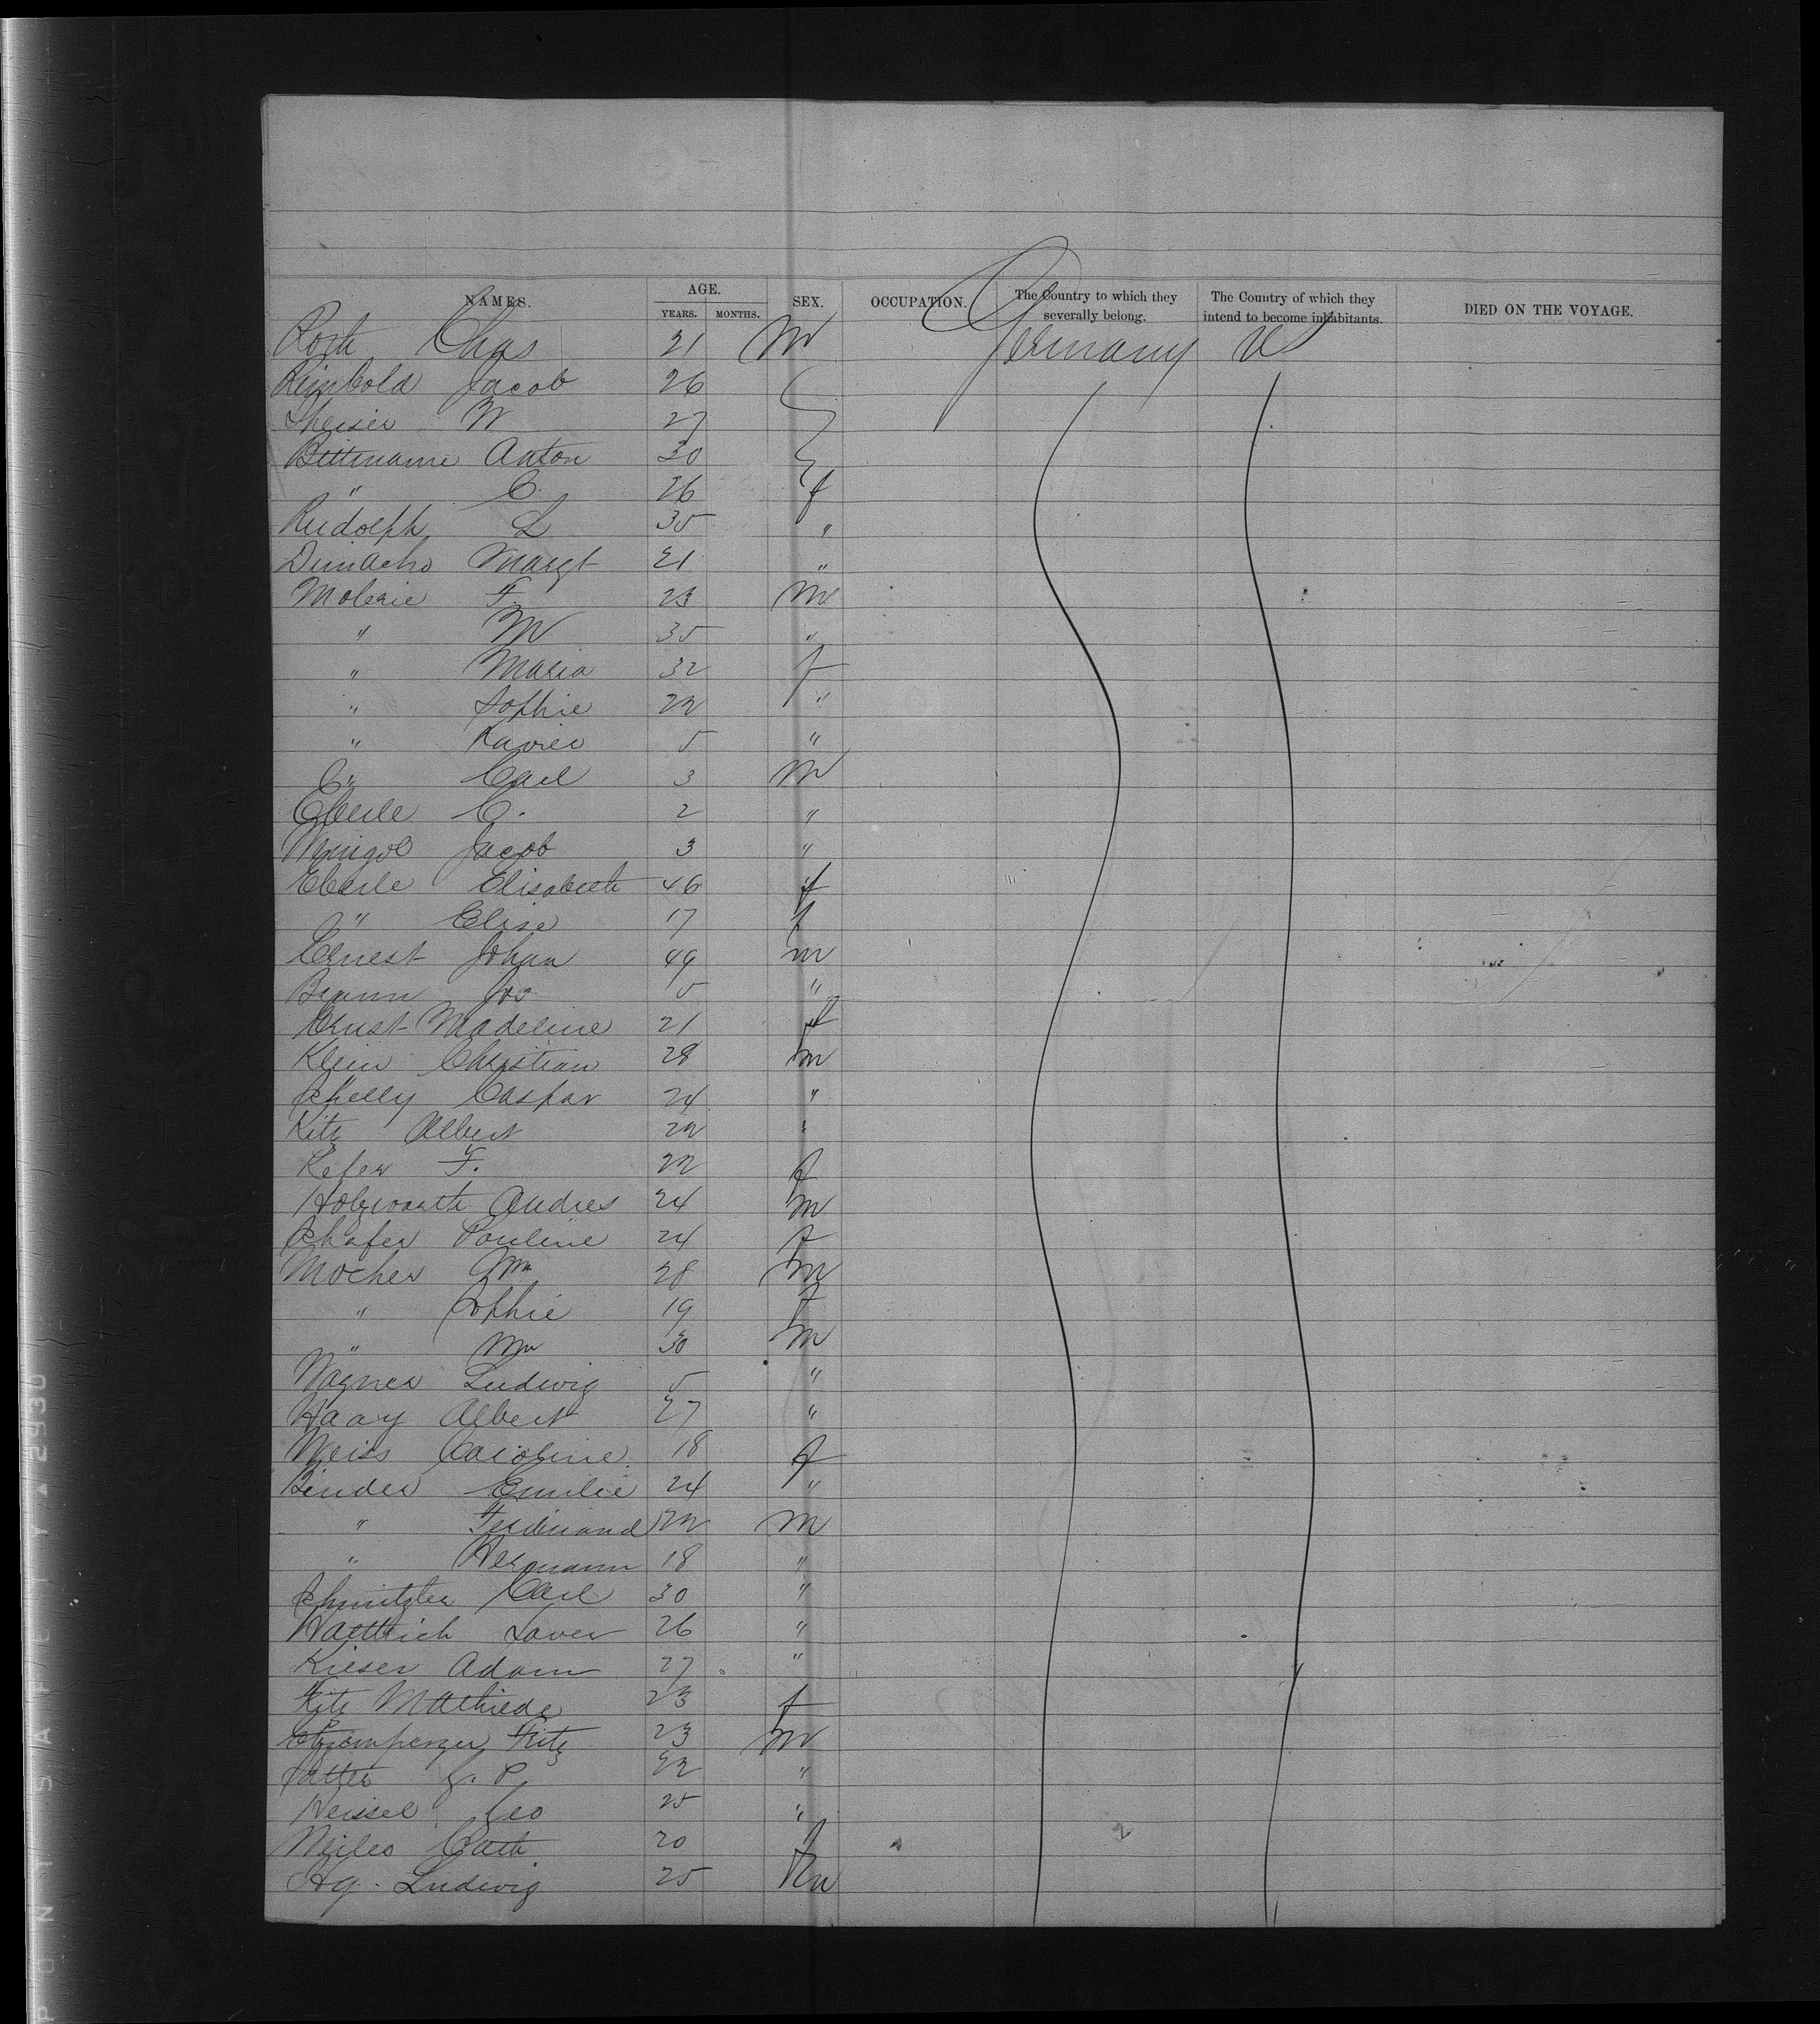 NAMES. AGE. SEX. OCCUPATION. The Country to which they severally belong. The Country of which they intend to become inhabitants. DIED ON THE VOYAGE.
YEARS. MONTHS.
Roth Chas 21 M Germany US
Reinbold Jacob 26
Theiser W 27
Anton 30
" C. 26 f
Rudolph L 35 "
Margt 21 "
Molerie F. 23 M
" M 35 "
" Maria 32 f
" Sophie 22 "
" 5 "
" Carl 3 M
Eberle C. 2 "
Jacob 3 "
Eberle Elisabeth 46 f
" Elise 17 f
Ernest Johan 49 m
Braun Jos 5 "
Ernst Madeline 21 f
Klein Christian 28 m
Schelly Caspar 24 "
Kitz Albert 22 "
Kefer F. 22 f
Holzwarth Andres 24 m
Schafer Pauline 24 f
Mocher Wm 28 m
" Sophie 19 f
" Wm 30 m
Wagner Ludwig 5 "
Haay Albert 27 "
Weiss Caroline 18 f
Binder Emilie 24 "
" Ferdinand 22 m
" Hermann 18 "
Schnitzler Carl 30 "
Hattrich Xaver 26 "
Kieser Adam 27 "
Kitz Mathilede 23 f
Fritz 23 m
Satter G. P. 22 "
Heissel Geo 25 "
Cath 20 f
Ludwig 25 m
PONT SAFETY ▲ 2930